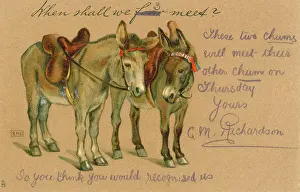 When shall we 3 meet?
These two chums
will meet their
other chum on
Thursday
Yours
C. M. Richardson
Do you think you would recognised us